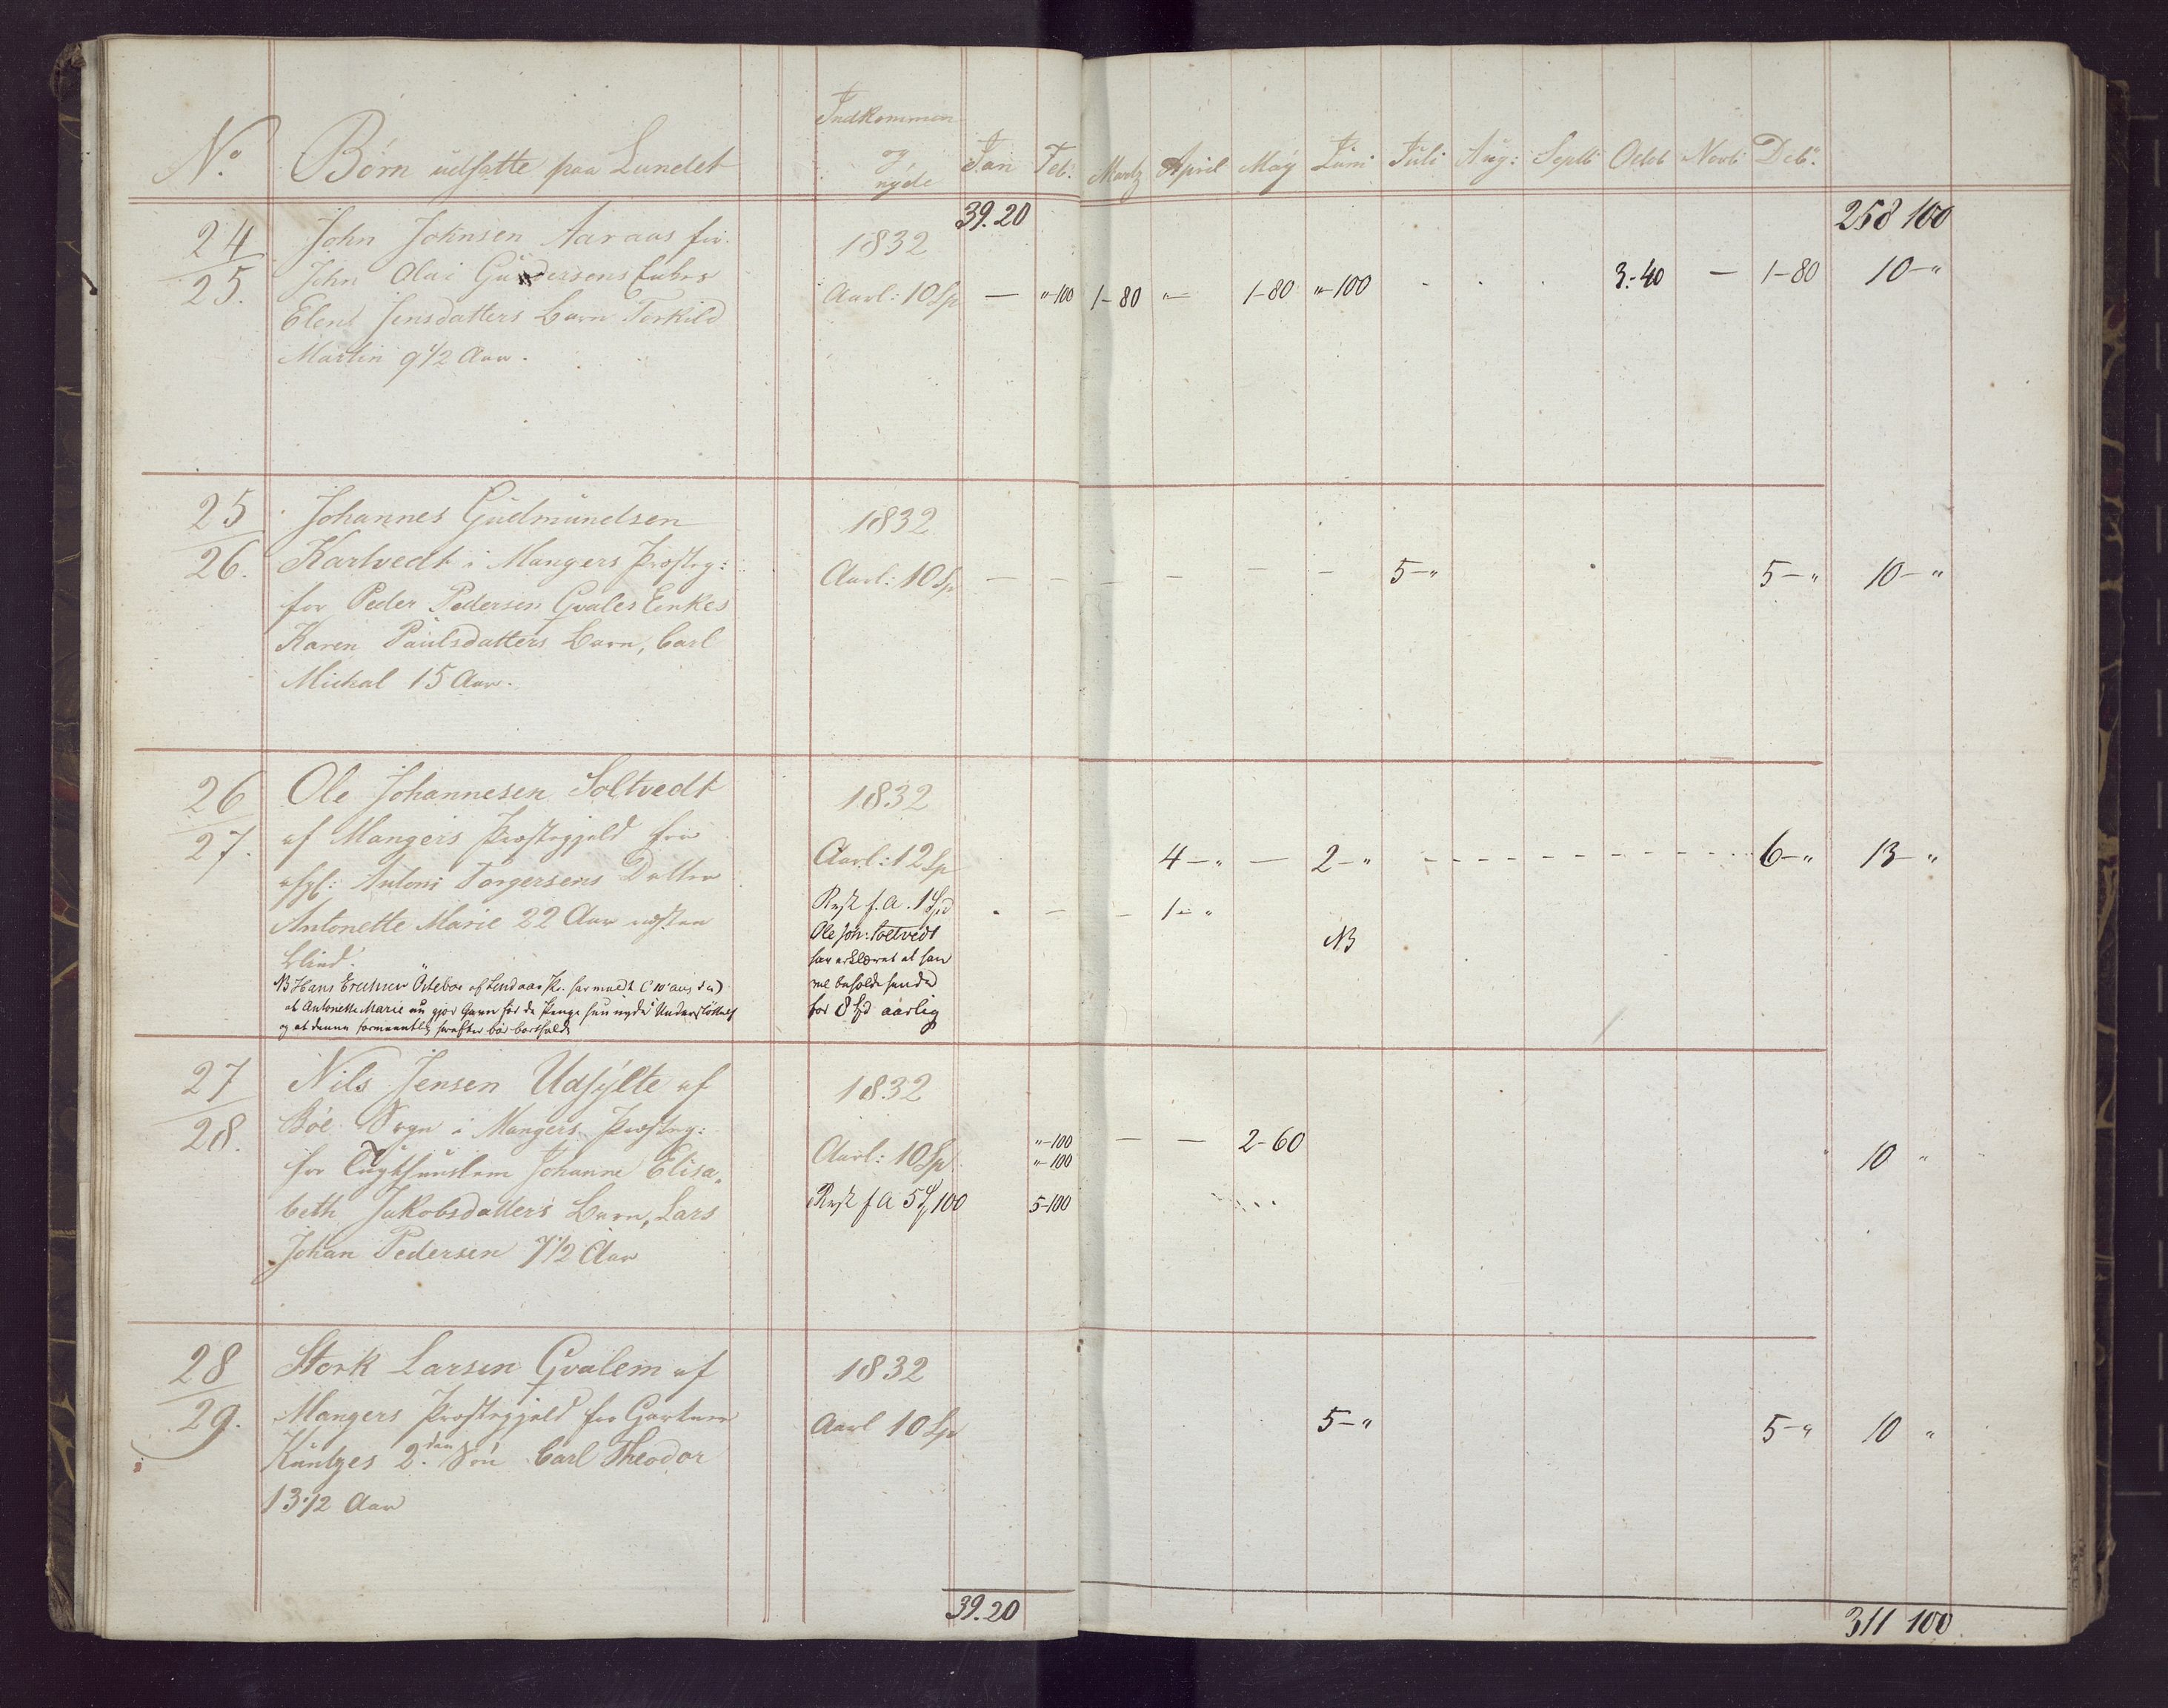 No. Børn udsatte paa Landet
Indkommen
og
nyde
Jan Feb: Martz April May Juni Juli Aug: Septb Octob Novb: Deb:
39.20
258 100
24
25.
John Johnsen Aaraas for
John Olai Gundersens Enkes
Elent Jensdatters Barn Torkild
Martin 9 1/2 Aar.
1832
Aarl: 10 Sp
— "-100 1-80 "— 1-80 "-100 3-40 — 1-80 10-"
25
26.
Johannes Gudmundsen
Kartvedt i Mangers Præsteg:
for Peder Pedersen Gvales Enkes
Karen Paulsdatters Barn, Carl
Michal 15 Aar.
1832
Aarl: 10 Sp
— — — — — — 5-" 5-" 10-"
26
27.
Ole Johannesen Soltvedt
af Mangers Præstegjeld for
afgl: Antoni Torgersens Datter
Antonette Marie 22 Aar næsten
blind.
NB Hans Ericksen Östeboe af Lindaas Pr. har meldt
at Antonette Marie nu gjør Gavn for de Penge hun nyder Understøttelse
og at denne formeentlig herefter bør bortfalde
1832
Aarl: 12 Sp
Rest f. A. 1 Spd
Ole Joh: Soltvedt
har erklæret at han
vil beholde hende
for 8 Spd aarlig
4-" — 2-" 6-" 13-"
— — 1-"
NB
27
28.
Nils Jensen Udsylte af
Bøe Sogn i Mangers Præsteg:
for Tugthuuslem Johanne Elisa-
beth Jakobsdatters Barn, Lars
Johan Pedersen 7 1/2 Aar
1832
Aarl: 10 Sp
Rest f A 5 Sp 100
"-100 — — 2-60
"-100
5-100
10 "
28
29.
Stork Larsen Gvalem af
Mangers Præstegjeld for Gartner
Kuntzes 2den Søn Carl Theodor
13 1/2 Aar
1832
Aarl 10 Sp
5-" 5-" 10 "
39.20
311 100